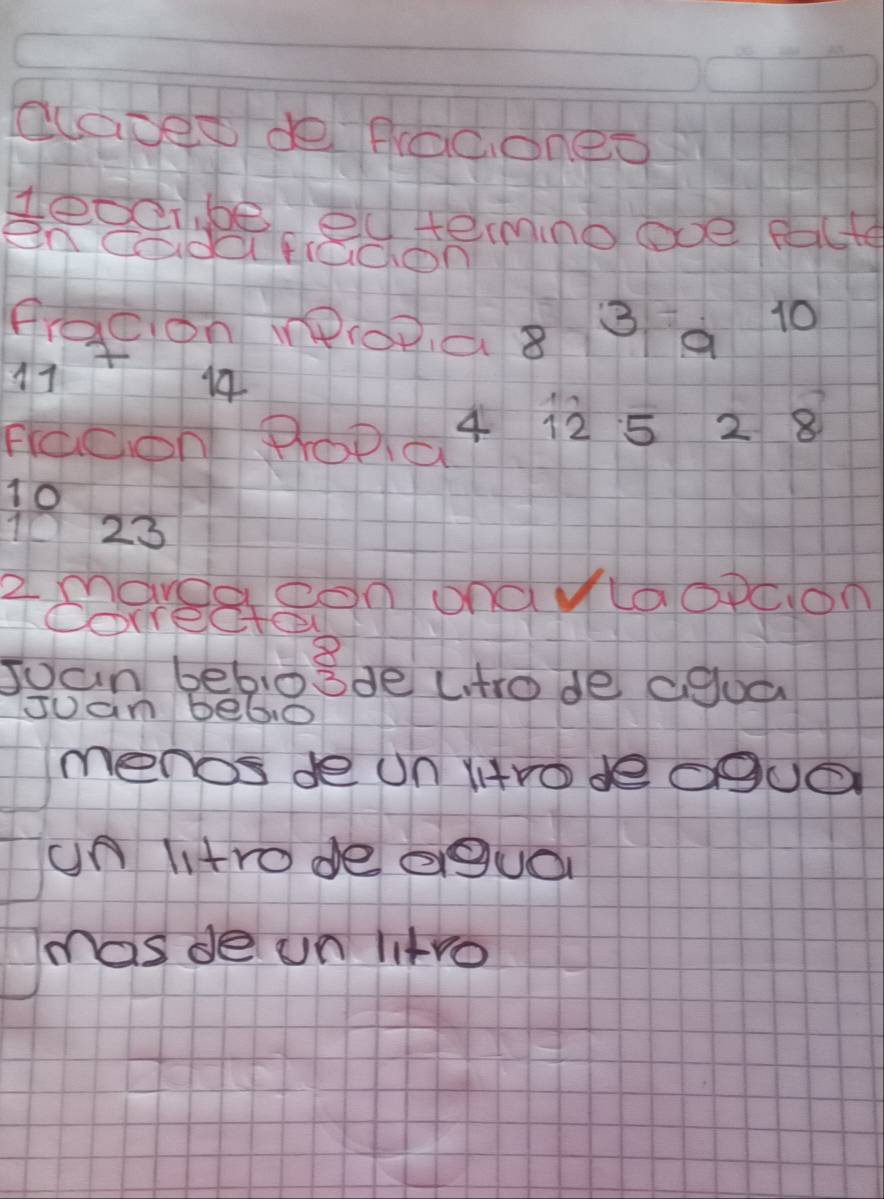 Clases de fraciones
1 escribe el termino que falta
en cada fracion
Fracion inpropia 8 3 9 10
11 7 14
Fracion Propia 4 12 5 2 8
10
10 23
2 marca con una ✓ la opcion
correcta
Juan bebio 8/3 de Litro de agua
Juan bebio
menos de un litro de agua
un litro de agua
mas de un litro